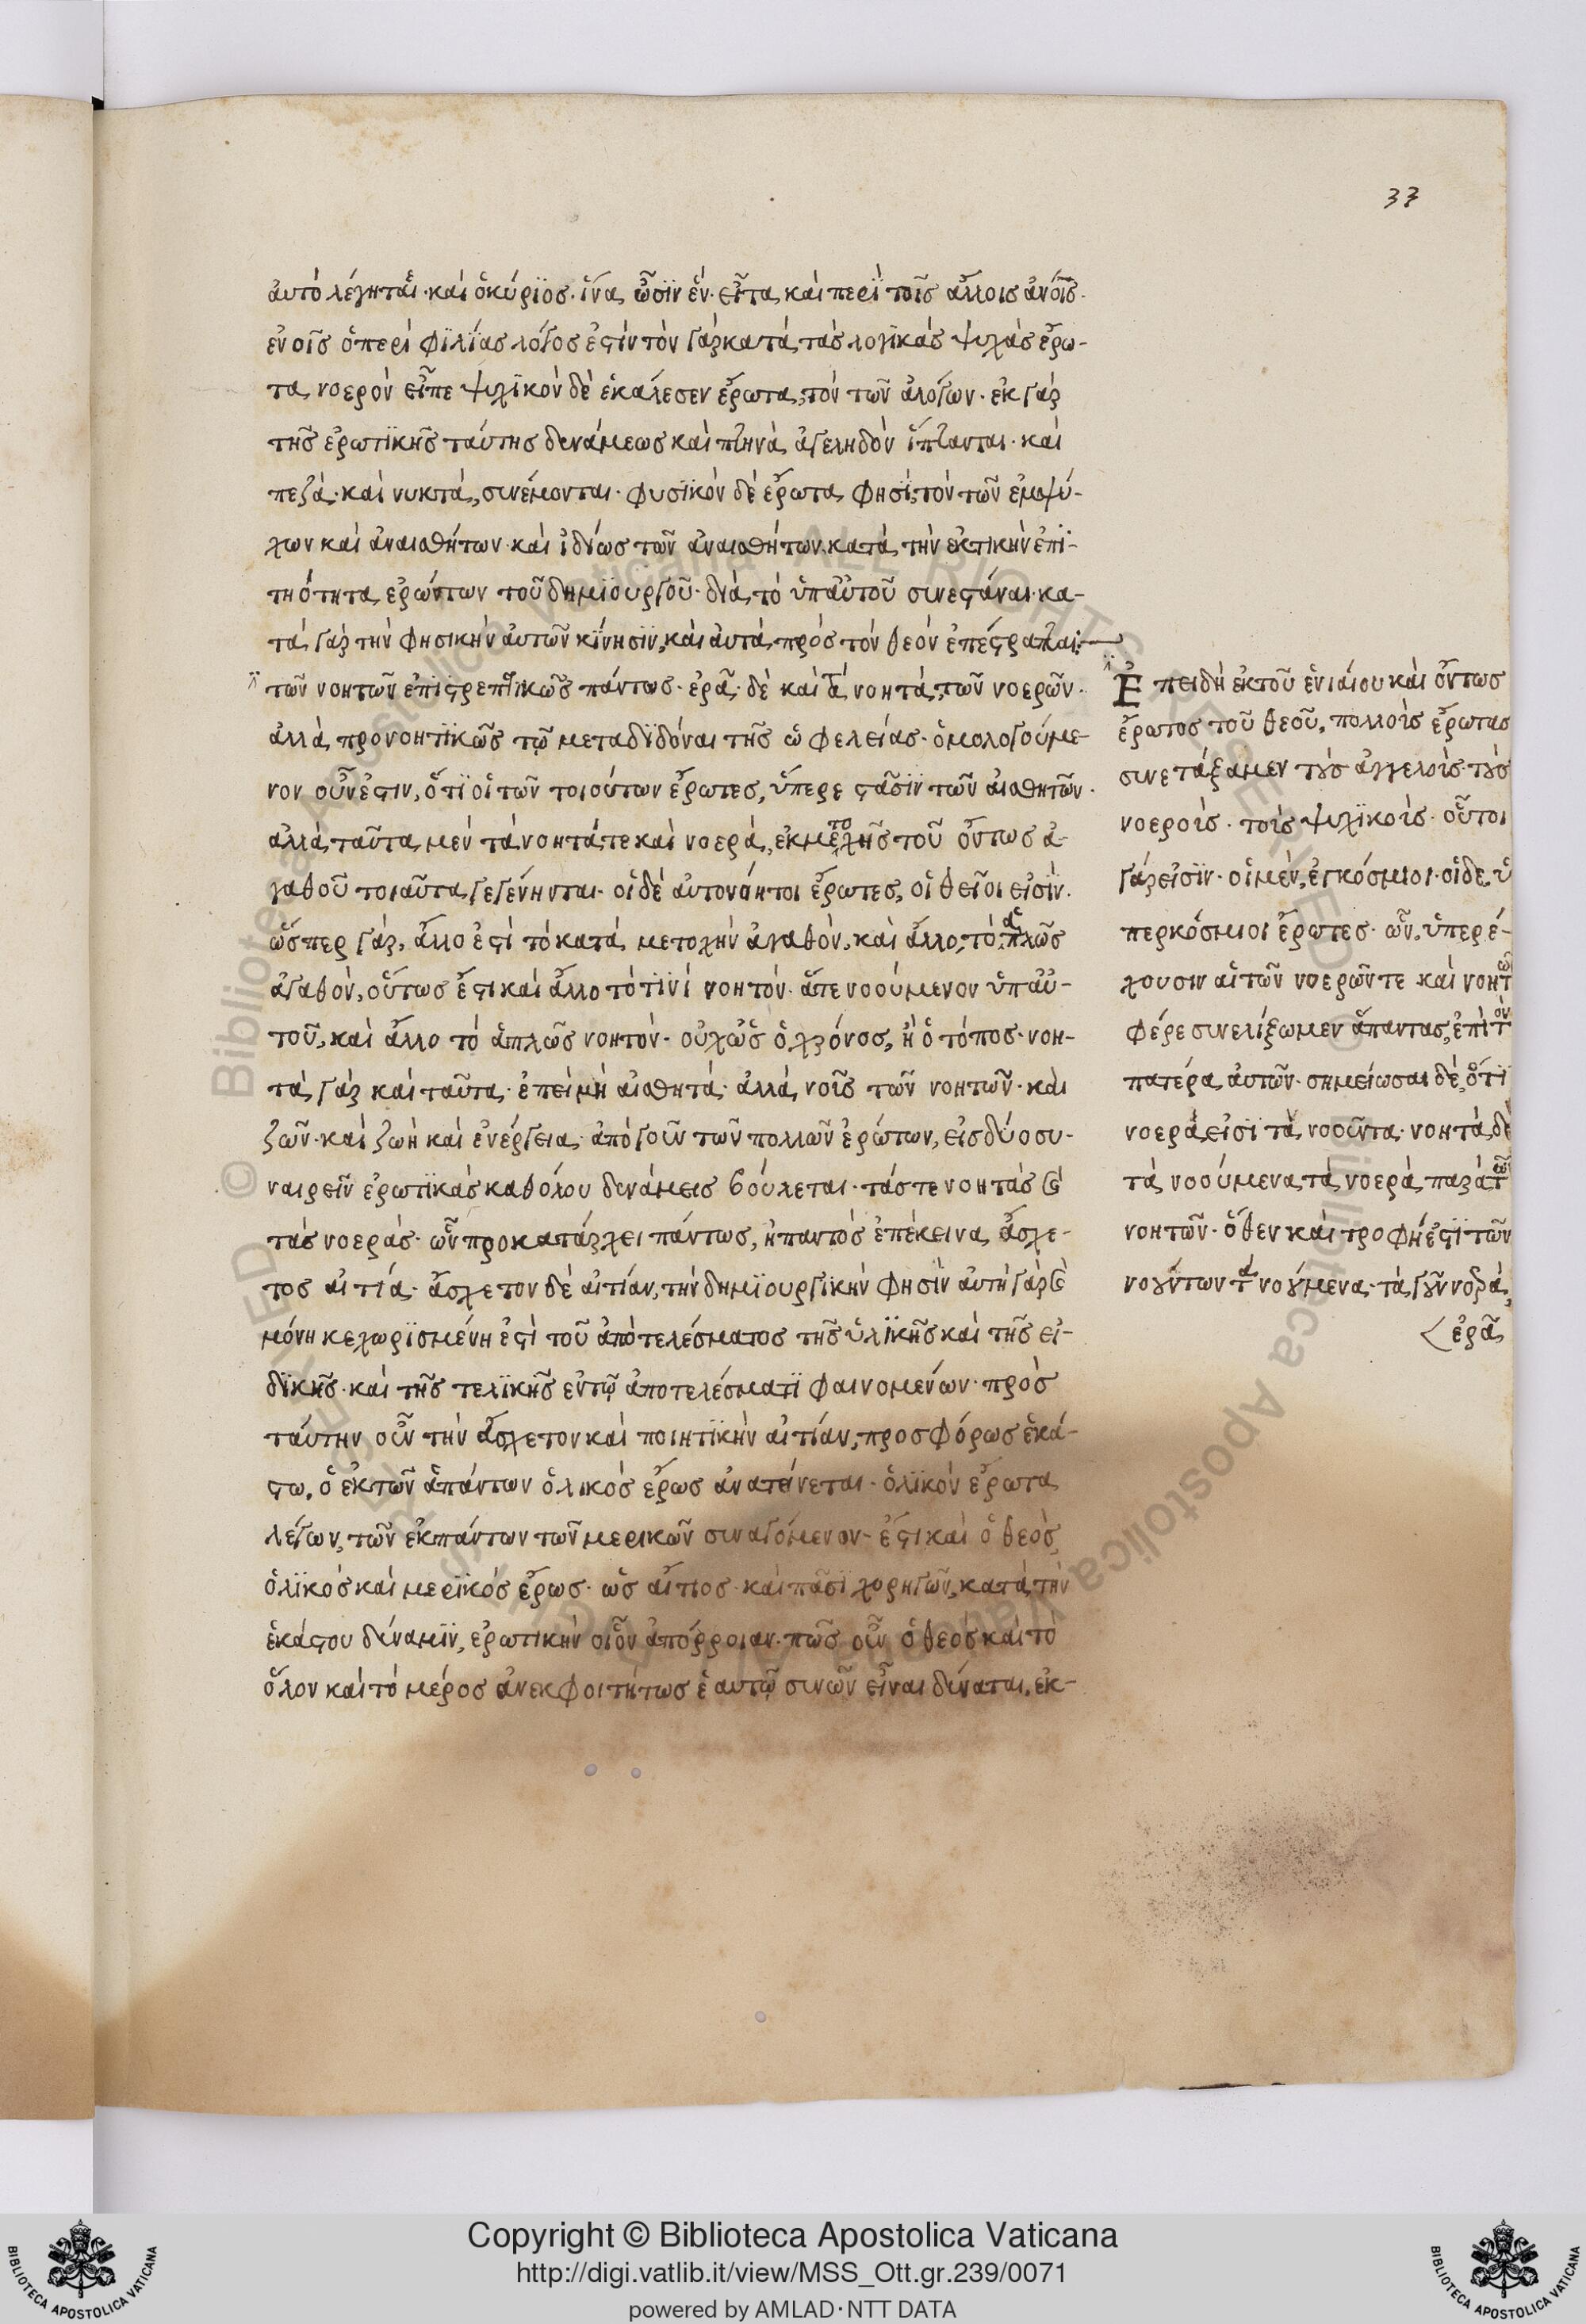 37
ἀυτὸ λέγηται· καὶ ὁ κύριος· ἵνα ὦσϊν ἕν· εἶτα καὶ περὶ τοῖς ἄλλοις ἀνοῖς·
ἐν οἷς ὁ περὶ φϊλίας λόγος ἐστὶν τὸν γὰρ κατὰ τὰς λογϊκὰς ψυχὰς ἔρω-
τα νοερὸν εἶπε ψυχϊκὸν δὲ ἐκάλεσεν ἔρωτα, τὸν τῶν ἀλόγων· ἐκ γὰρ
τῆς ἐρωτϊκῆς ταύτης δυνάμεως καὶ πτηνὰ ἀγεληδὸν ἵπτανται· καὶ
πεζά· καὶ νυκτά, συνέμονται· φυσϊκὸν δὲ ἔρωτα φησϊ, τὸν τῶν ἐμψύ-
χων καὶ ἀναισθήτων· καὶ ἰδίως τῶν ἀναισθήτων κατὰ τὴν ἑκτικὴν ἐπϊ-
τηότητα ἐρώντων τοῦ δημϊουργοῦ· διὰ τὸ ὑπ αὐτοῦ συνεστάναι· κα-
τὰ γὰρ τὴν φησικὴν ἀυτῶν κϊνησϊν, καὶ ἀυτὰ πρὸς τὸν θεὸν ἐπέστραπται:
τῶν νοητῶν ἐπϊστρεπτϊκῶς πάντως· ἐρᾶ· δὲ καὶ τὰ νοητά, τῶν νοερῶν·
ἀλλὰ προνοητϊκῶς τῷ μεταδϊδόναι τῆς ὠφελείας· ὁμολογούμε-
νον οὖν ἐστιν, ὅτϊ οἱ τῶν τοιούτων ἔρωτες, ὕπερε στᾶσϊν τῶν αἰσθητῶν·
ἀλλὰ ταῦτα μὲν τὰ νοητά τε καὶ νοερά, ἐκ μετοχῆς τοῦ ὄντως ἀ-
γαθοῦ τοιαῦτα γεγένηνται· οἱ δὲ ἀυτονόητοι ἔρωτες, οἱ θεῖοι εἰσίν·
ὥσπερ γὰρ, ἄλλο ἐστὶ τὸ κατὰ μετοχὴν ἀγαθὸν, καὶ ἄλλο, τὸ ἁπλῶς
ἀγαθὸν, οὕτως ἔστι καὶ ἄλλο τὸ τϊνὶ νοητόν· ἅπε νοούμενον ὑπ αὐ-
τοῦ, καὶ ἄλλο τὸ ἁπλῶς νοητόν· οὐχ ὡς ὁ χρόνος, ἢ ὁ τόπος· νοη-
τὰ γὰρ καὶ ταῦτα· ἐπεὶ μὴ αἰσθητά· ἀλλὰ νοῖς τῶν νοητῶν· καὶ
ζῶν· καὶ ζωὴ καὶ ἐνέργεια· ἀπὸ γοῦν τῶν πολλῶν ἐρώτων, εἰς δύο συ-
ναιρεῖν ἐρωτϊκὰς καθόλου δυνάμεις βούλεται· τάς τε νοητὰς καὶ
τὰς νοεράς· ὧν προκατάρχει πάντως, ἡ παντὸς ἐπέκεινα ἄσχε-
τος αἰτία· ἄσχετον δὲ αἰτίαν, τὴν δημϊουργικήν φησὶν ἀυτὴ γὰρ καὶ
μόνη κεχωρϊσμένη ἐστὶ τοῦ ἀποτελέσματος τῆς ὑλϊκῆς καὶ τῆς εἰ-
δϊκῆς· καὶ τῆς τελϊκῆς ἐν τῷ ἀποτελέσματϊ φαινομενων· πρὸς
ταύτην οὖν τὴν ἄσχετον καὶ ποιητϊκὴν αἰτίαν, προσφόρως ἑκά-
στω, ὁ ἐκ τῶν ἁπάντων ὁλικὸς ἔρως ἀνατείνεται· ὁλϊκὸν ἔρωτα
λέγων, τῶν ἐκ πάντων τῶν μερικῶν συναγόμενον· ἔστι καὶ ὁ θεὸς
ὁλϊκὸς καὶ μερϊκὸς ἔρως· ὡς αἴτιος· καὶ πᾶσϊ χορηγῶν, κατὰ τὴν
ἑκάστου δύναμϊν, ἐρωτικὴν οἷον ἀπόρροιαν· πῶς οὖν ὁ θεὸς καὶ τὸ
ὅλον καὶ τὸ μέρος ἀνεκφοιτήτως ἑαυτῷ συνῶν εἶναι δύναται, ἐκ-
Ἐπειδὴ ἐκ τοῦ ἑνιαίου καὶ ὄντως
ἔρωτος τοῦ θεοῦ, πολλοὺς ἔρωτας
συνετάξαμεν τοὺς ἀγγελοὶς· τοὺς
νοεροὶς· τοὶς ψυχϊκοὶς· οὗτοι
γάρ εἰσϊν· οἱ μὲν, ἐγκόσμιοι· οἱ δε, ὑ
περκόσμιοι ἔρωτες· ὧν, ὑπερέ-
χουσιν αἱ τῶν νοερῶν τε καὶ νοητῶ
φέρε συνελίξωμεν ἅπαντας, ἐπὶ τὸν
πατέρα ἀυτῶν· σημείωσαι δὲ, ὅτϊ
νοερά εἰσϊ τὰ νοοῦντα· νοητὰ δὲ
τὰ νοούμενα, τὰ νοερὰ παρὰ τῶν
νοητῶν· ὅθεν καὶ τροφή ἐστϊ τῶν
νοούντων τὰ νοούμενα· τὰ γοῦν νοερὰ,
ἐρᾶ